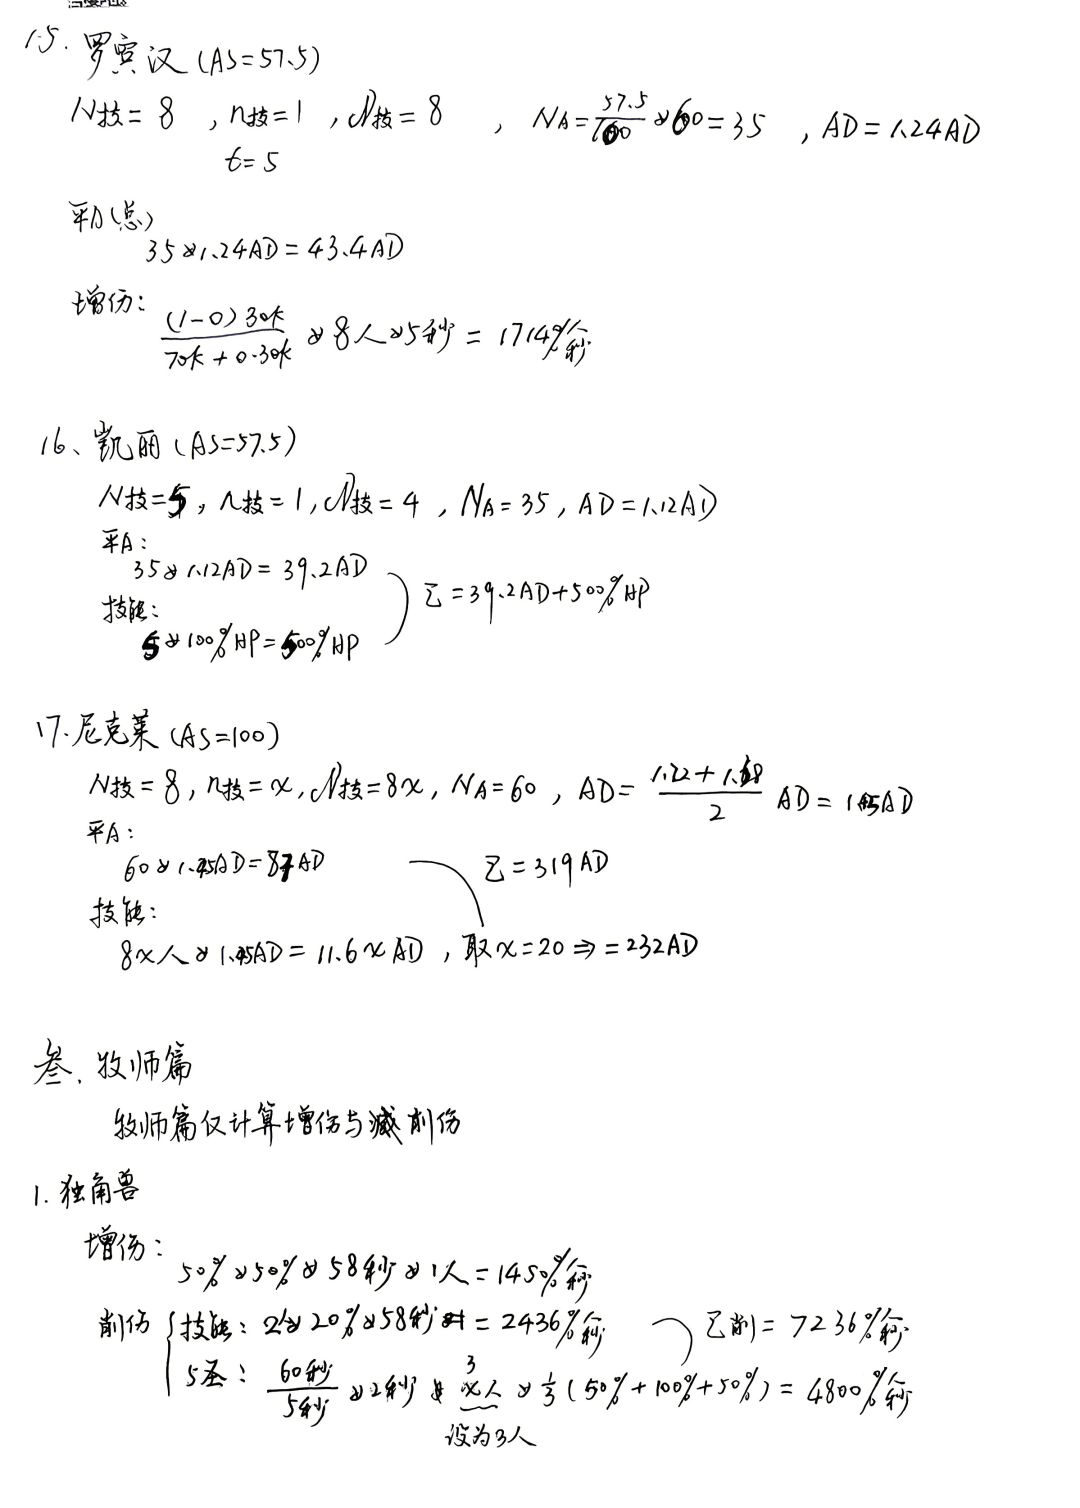 15. 罗宾汉 (AS=57.5)
N技=8 , n技=1 , N技=8 , NA=57.5/100×60=35 , AD=1.24AD
t=5
平A(总)
35×1.24AD=43.4AD
增伤:
(1-0)30k/70k+0.30k × 8人×5秒 = 1714%人/秒
16、凯丽 (AS=57.5)
N技=5, n技=1, N技=4 , NA=35, AD=1.12AD
平A:
35×1.12AD=39.2AD
技能:
5×100%HP=500%HP
Σ=39.2AD+500%HP
17.尼克莱 (AS=100)
N技=8, n技=x, N技=8x, NA=60 , AD=1.22+1.68/2 AD=1.45AD
平A:
60×1.45AD=87AD
Σ=319AD
技能:
8x人×1.45AD=11.6xAD , 取x=20⇒=232AD
叁.牧师篇
牧师篇仅计算增伤与减削伤
1.独角兽
增伤:
50%×50%×58秒×1人=1450%人/秒
削伤 技能: 21×20%×58秒=2436%人/秒
Σ削=7236%人/秒
5圣: 60秒/5秒×2秒×3x人×1/3(50%+100%+50%)=4800%人/秒
设为3人